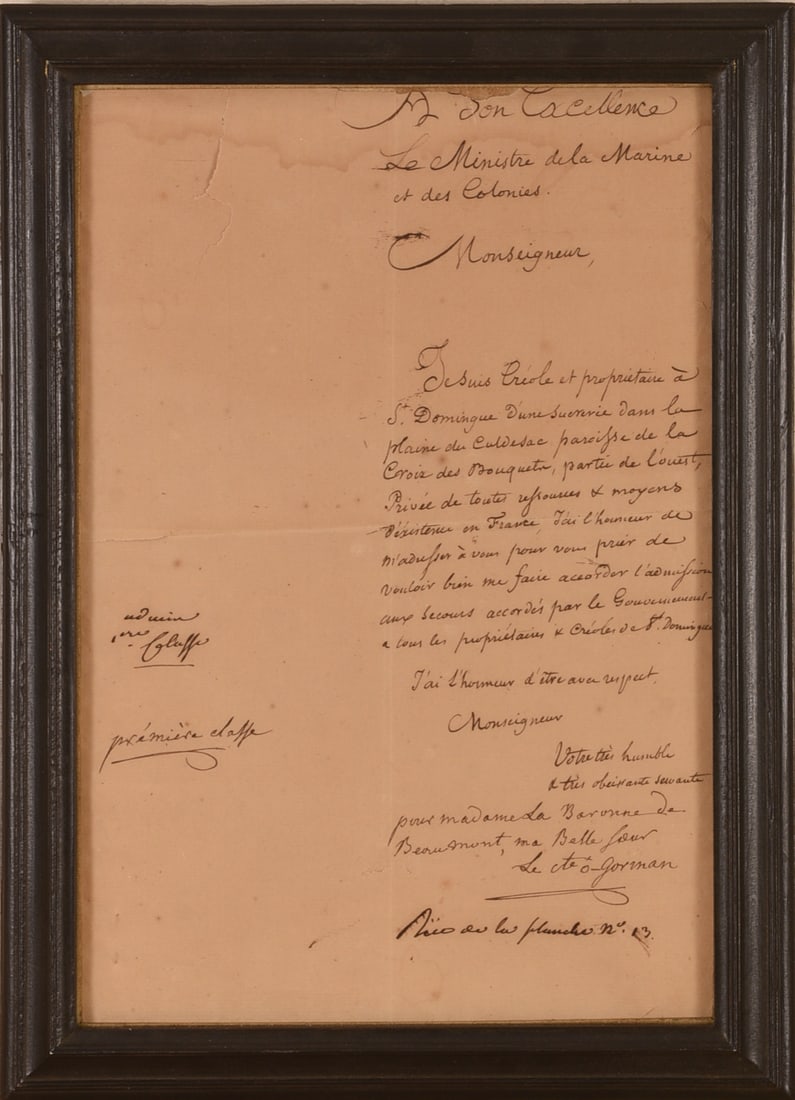 A Son Excellence
Le Ministre de la Marine
et des Colonies.
Monseigneur,
Je suis Créole et propriétaire à
St. Domingue D'une Sucrerie dans la
plaine du Culdesac paroisse de la
Croix des Bouquets, partie de l'ouest,
Privée de toutes ressources & moyens
d'éxistence en France, J'ai l'honneur de
m'adresser à vous pour vous prier de
vouloir bien me faire accorder l'admission
aux Secours accordés par le Gouvernement
a tous les propriétaires & Créoles de St. Domingue
J'ai L'honneur d'être avec respect,
Monseigneur
Votre très humble
& très obeisante servante
pour madame La Baronne de
Beaumont, ma Belle Soeur
Le cte ô-Gorman
Rüe de la planche No. 13.
1ere Classe
prémière classe